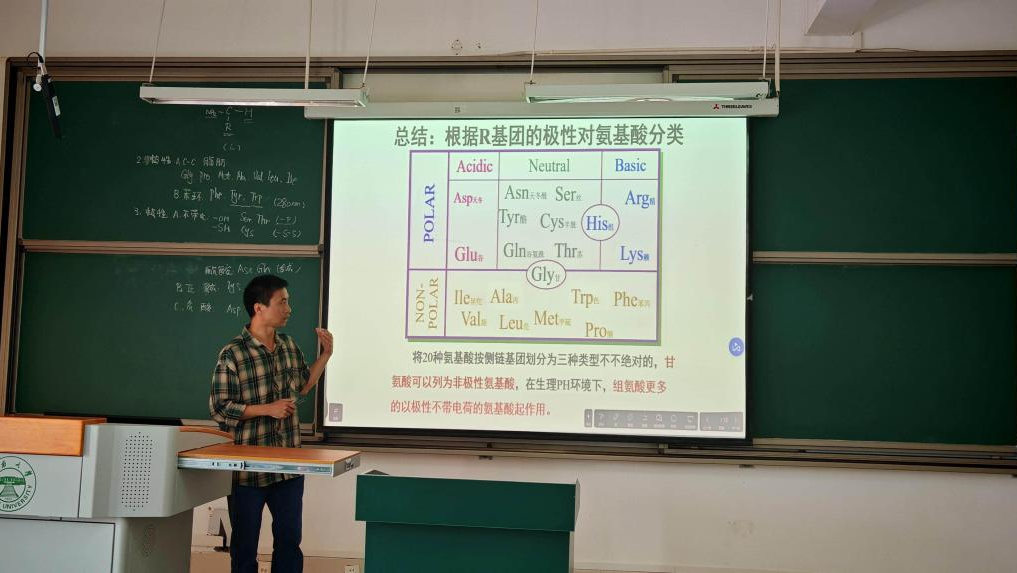 NH₂-C-H
R
2.非极性: A.C-C 脂肪
Gly Pro Met Ala Val Leu, Ile
B.苯环 Phe, Tyr, Trp (280nm)
3. 极性 A.不带电 -OH Ser Thr
-SH Cys (-S-S)
Asn Gln
B.正
C.负 Asp
THREELEAVES
总结：根据R基团的极性对氨基酸分类
Acidic Neutral Basic
POLAR
Asp天冬 Asn天冬酰 Ser丝 Arg精
Tyr酪 Cys半胱 His组
Glu谷 Gln谷氨酰 Thr苏 Lys赖
Gly甘
NON-POLAR
Ile异亮 Ala丙 Trp色 Phe苯丙
Val缬 Leu亮 Met甲硫 Pro脯
将20种氨基酸按侧链基团划分为三种类型不不绝对的，甘
氨酸可以列为非极性氨基酸，在生理PH环境下，组氨酸更多
的以极性不带电荷的氨基酸起作用。
UNIVERSITY